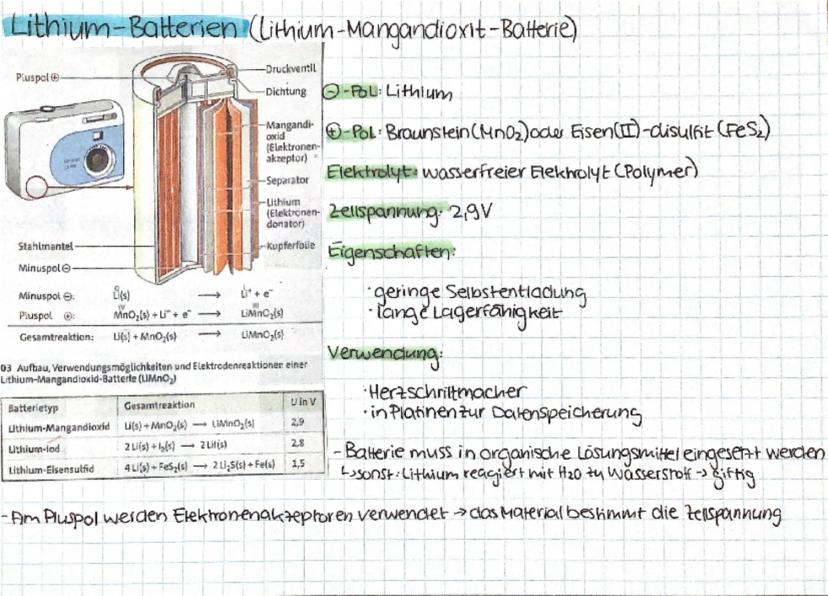 Lithium-Batterien (Lithium-Mangandioxit-Batterie)
Pluspol ⊕
Druckventil
Dichtung
Mangandi-
oxid
(Elektronen-
akzeptor)
Separator
Lithium
(Elektronen-
donator)
Kupferfolie
Stahlmantel
Minuspol ⊖
Minuspol ⊖: Li(s) → Li⁺ + e⁻
0
IV III
Pluspol ⊕: MnO₂(s) + Li⁺ + e⁻ → LiMnO₂(s)
Gesamtreaktion: Li(s) + MnO₂(s) → LiMnO₂(s)
03 Aufbau, Verwendungsmöglichkeiten und Elektrodenreaktionen einer
Lithium-Mangandioxid-Batterie (LiMnO₂)
Batterietyp Gesamtreaktion U in V
Lithium-Mangandioxid Li(s) + MnO₂(s) → LiMnO₂(s) 2,9
Lithium-Iod 2 Li(s) + I₂(s) → 2 LiI(s) 2,8
Lithium-Eisensulfid 4 Li(s) + FeS₂(s) → 2 Li₂S(s) + Fe(s) 1,5
⊖-Pol: Lithium
⊕-Pol: Braunstein (MnO₂) oder Eisen(II)-disulfit (FeS₂)
Elektrolyt: wasserfreier Elektrolyt (Polymer)
Zellspannung: 2,9V
Eigenschaften:
· geringe Selbstentladung
· lange Lagerfähigkeit
Verwendung:
· Herzschrittmacher
· in Platinen zur Datenspeicherung
- Batterie muss in organische Lösungsmittel eingesetzt werden
↳ sonst: Lithium reagiert mit H₂O zu Wasserstoff → giftig
- Am Pluspol werden Elektronenakzeptoren verwendet → das Material bestimmt die Zellspannung